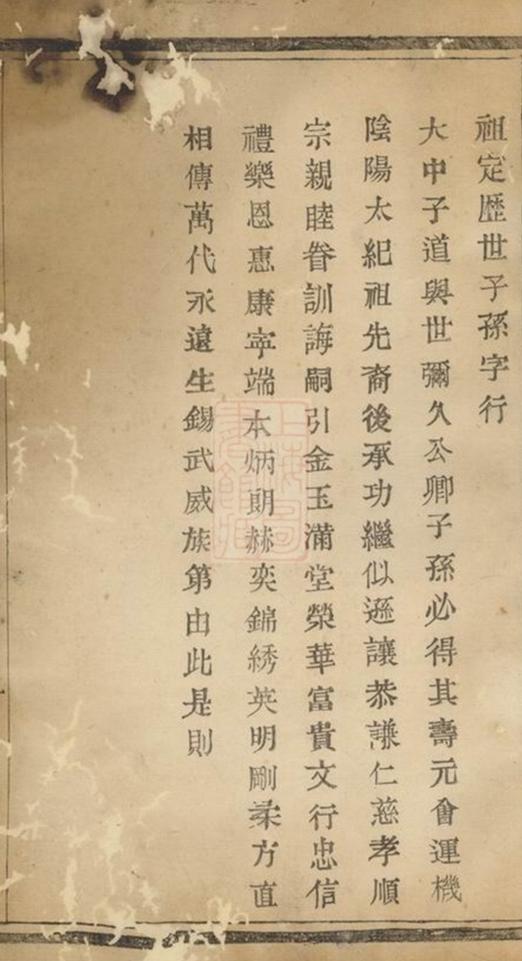 祖定歴世子孫字行
大中子道與世彌久公卿子孫必得其壽元會運機
陰陽太紀祖先裔後承功繼似遜讓恭謙仁慈孝順
宗親睦眷訓誨嗣引金玉滿堂榮華富貴文行忠信
禮樂恩惠康寧端本炳朗赫奕錦綉英明剛柔方直
相傳萬代永遠生錫武威族第由此是則